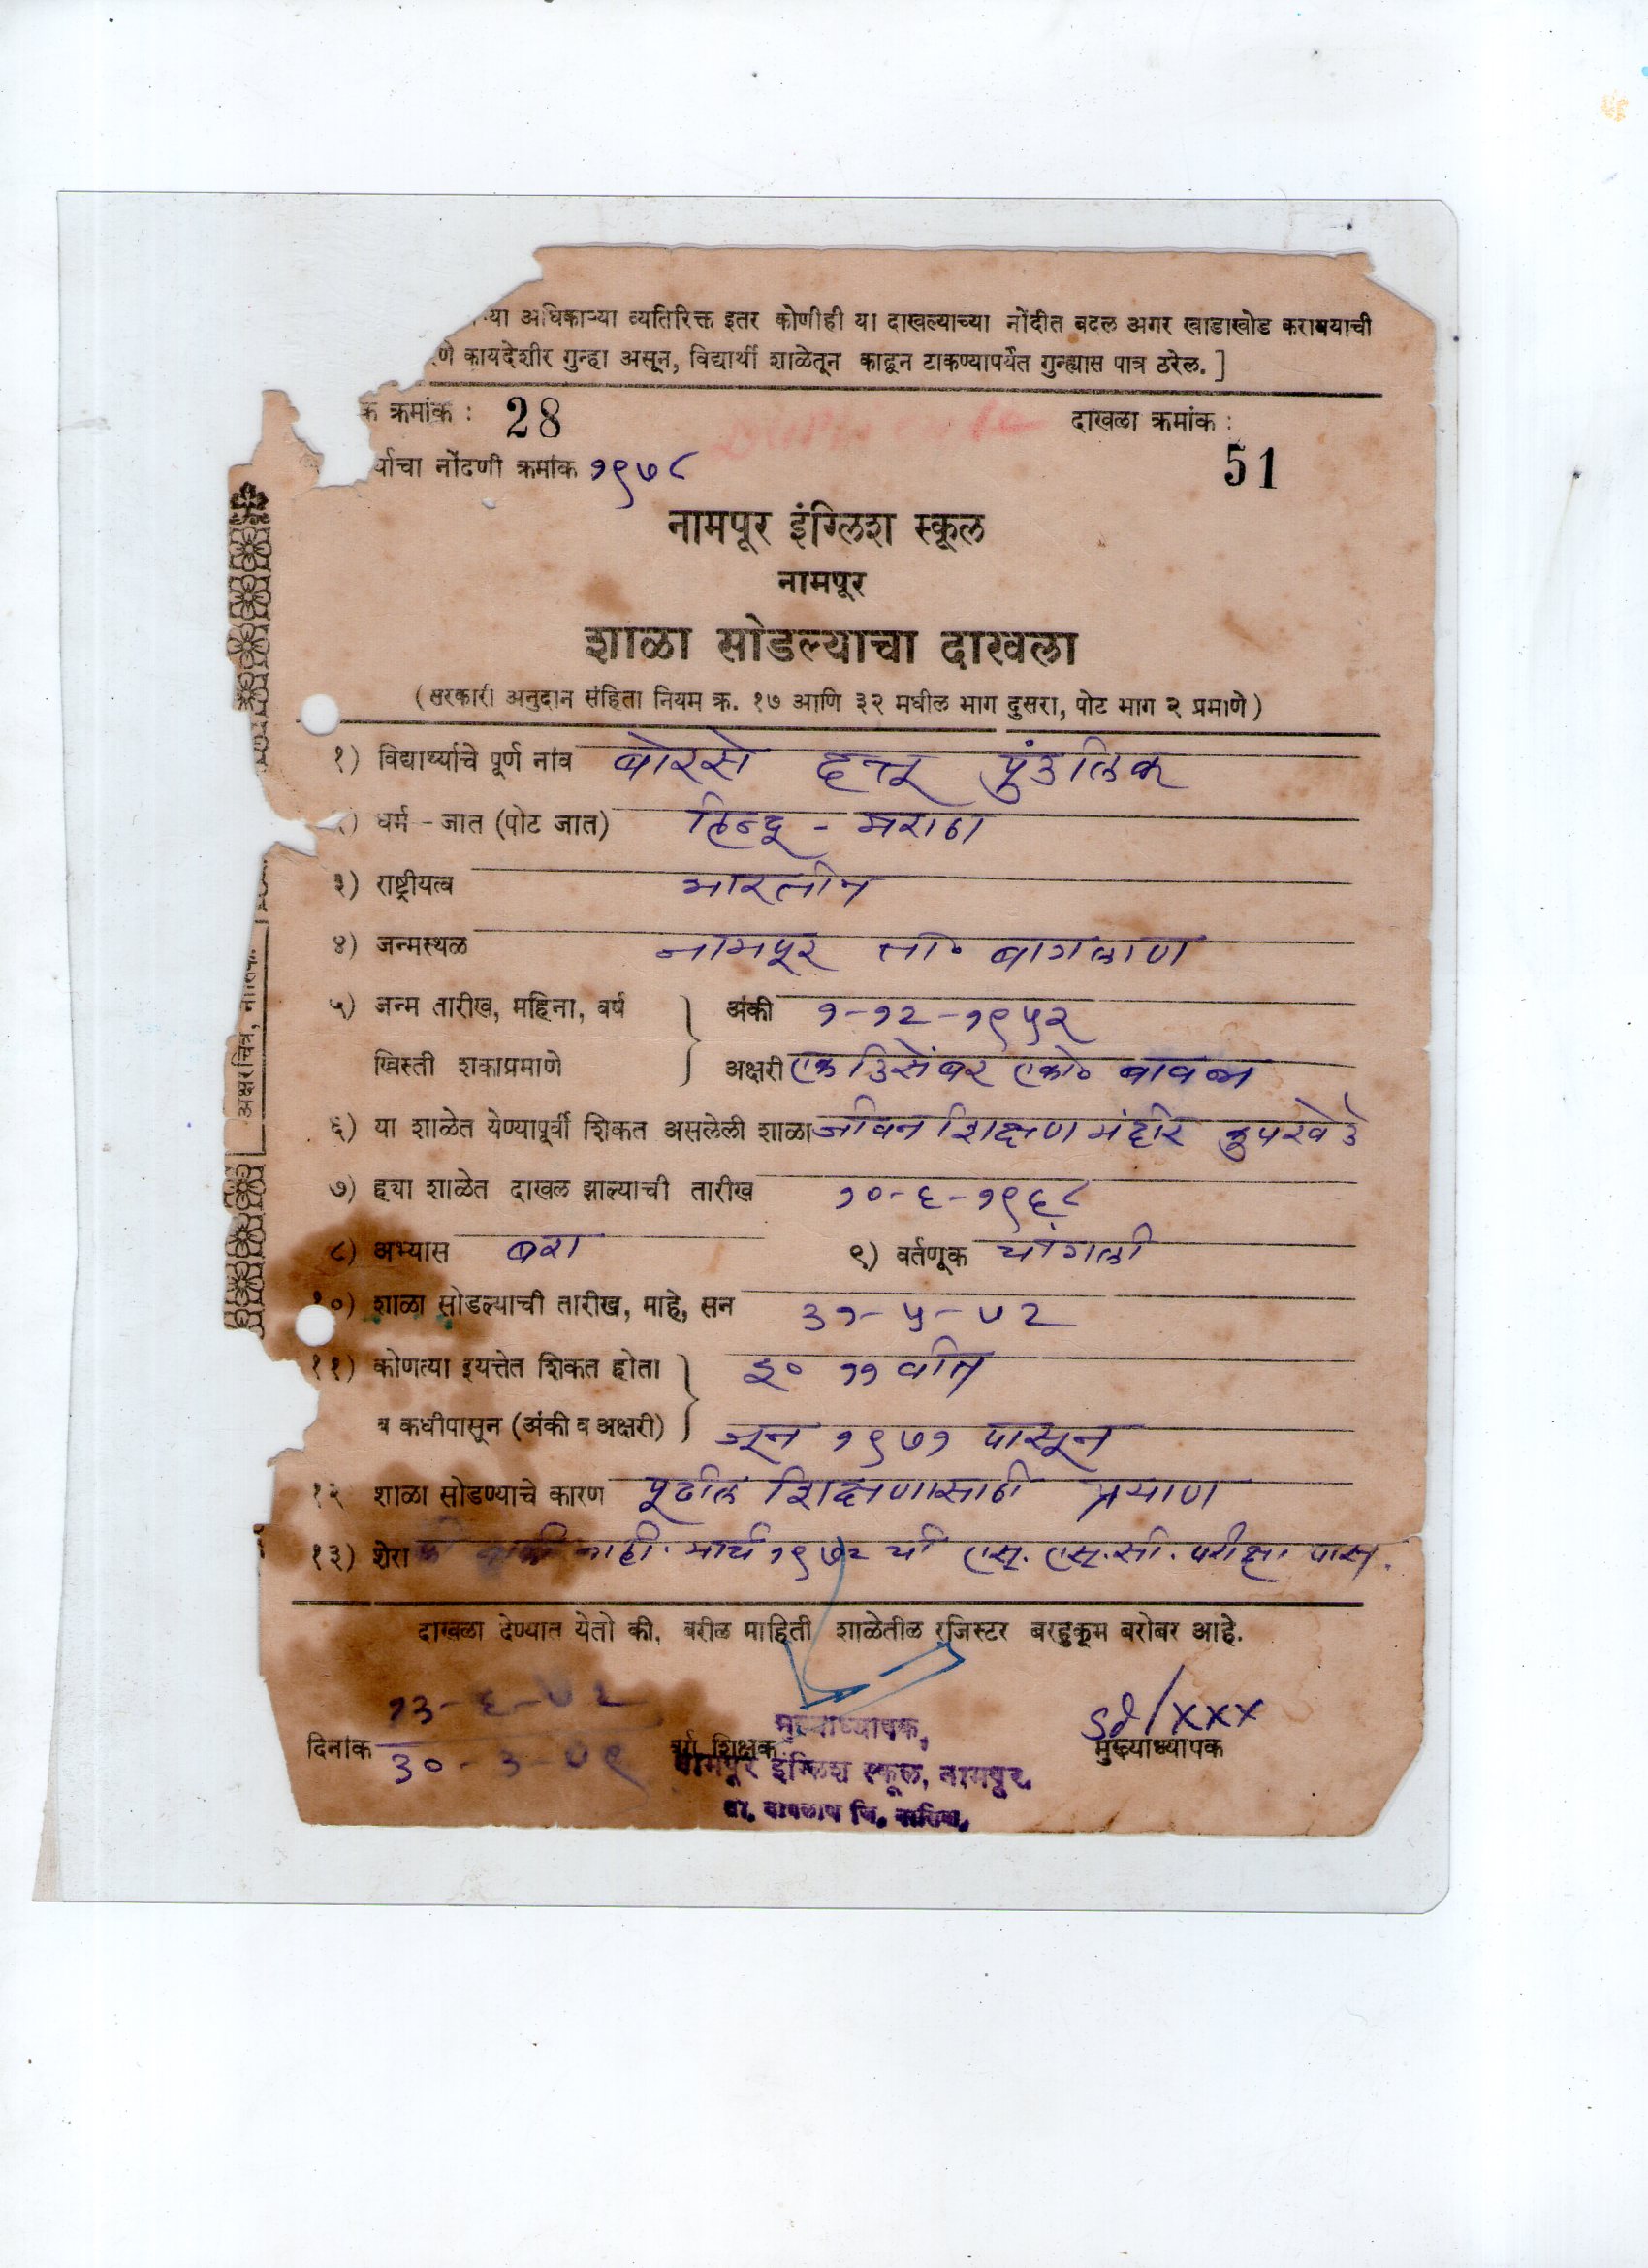 या अधिकाऱ्या व्यतिरिक्त इतर कोणीही या दाखल्याच्या नोंदीत बदल अगर खाडाखोड करावयाची
णे कायदेशीर गुन्हा असून, विद्यार्थी शाळेतून काढून टाकण्यापर्यंत गुन्ह्यास पात्र ठरेल. ]
क क्रमांक : 28 दाखळा क्रमांक :
र्याचा नोंदणी क्रमांक १९७८ 51
नामपूर इंग्लिश स्कूल
नामपूर
शाळा सोडल्याचा दाखला
( सरकारी अनुदान संहिता नियम क्र. १७ आणि ३२ मधील भाग दुसरा, पोट भाग २ प्रमाणे )
१) विद्यार्थ्याचे पूर्ण नांव बोरसे दत्तू पुंडलिक
) धर्म - जात (पोट जात) हिन्दू - मराठा
३) राष्ट्रीयत्व भारतीय
४) जन्मस्थळ नामपूर ता० बागलाण
५) जन्म तारीख, महिना, वर्ष अंकी १-१२-१९५२
ख्रिस्ती शकाप्रमाणे अक्षरी एक डिसेंबर एको० बावन्न
६) या शाळेत येण्यापूर्वी शिकत असलेली शाळा जीवन शिक्षण मंदीर कुपखेडे
७) ह्या शाळेत दाखल झाल्याची तारीख १०-६-१९६८
८) अभ्यास बरा ९) वर्तणूक चांगली
१०) शाळा सोडल्याची तारीख, माहे, सन ३१-५-७२
११) कोणत्या इयत्तेत शिकत होता इ० ११ वीत
व कधीपासून (अंकी व अक्षरी) जून १९७१ पासून
१२ शाळा सोडण्याचे कारण पूढील शिक्षणासाठी प्रयाण
१३) शेरा नाही. मार्च १९७२ ची एस्. एस्.सी. परीक्षा पास.
दाखळा देण्यात येतो की, वरील माहिती शाळेतील रजिस्टर बरहुकूम बरोबर आहे.
१३-६-७२
दिनांक वर्ग शिक्षक मुख्याध्यापक, sd/xxx मुख्याध्यापक
३०-३-७९ नामपूर इंग्लिश स्कूल, नामपूर.
ता. बागलाण जि. नाशिक.
अक्षरचित्र,